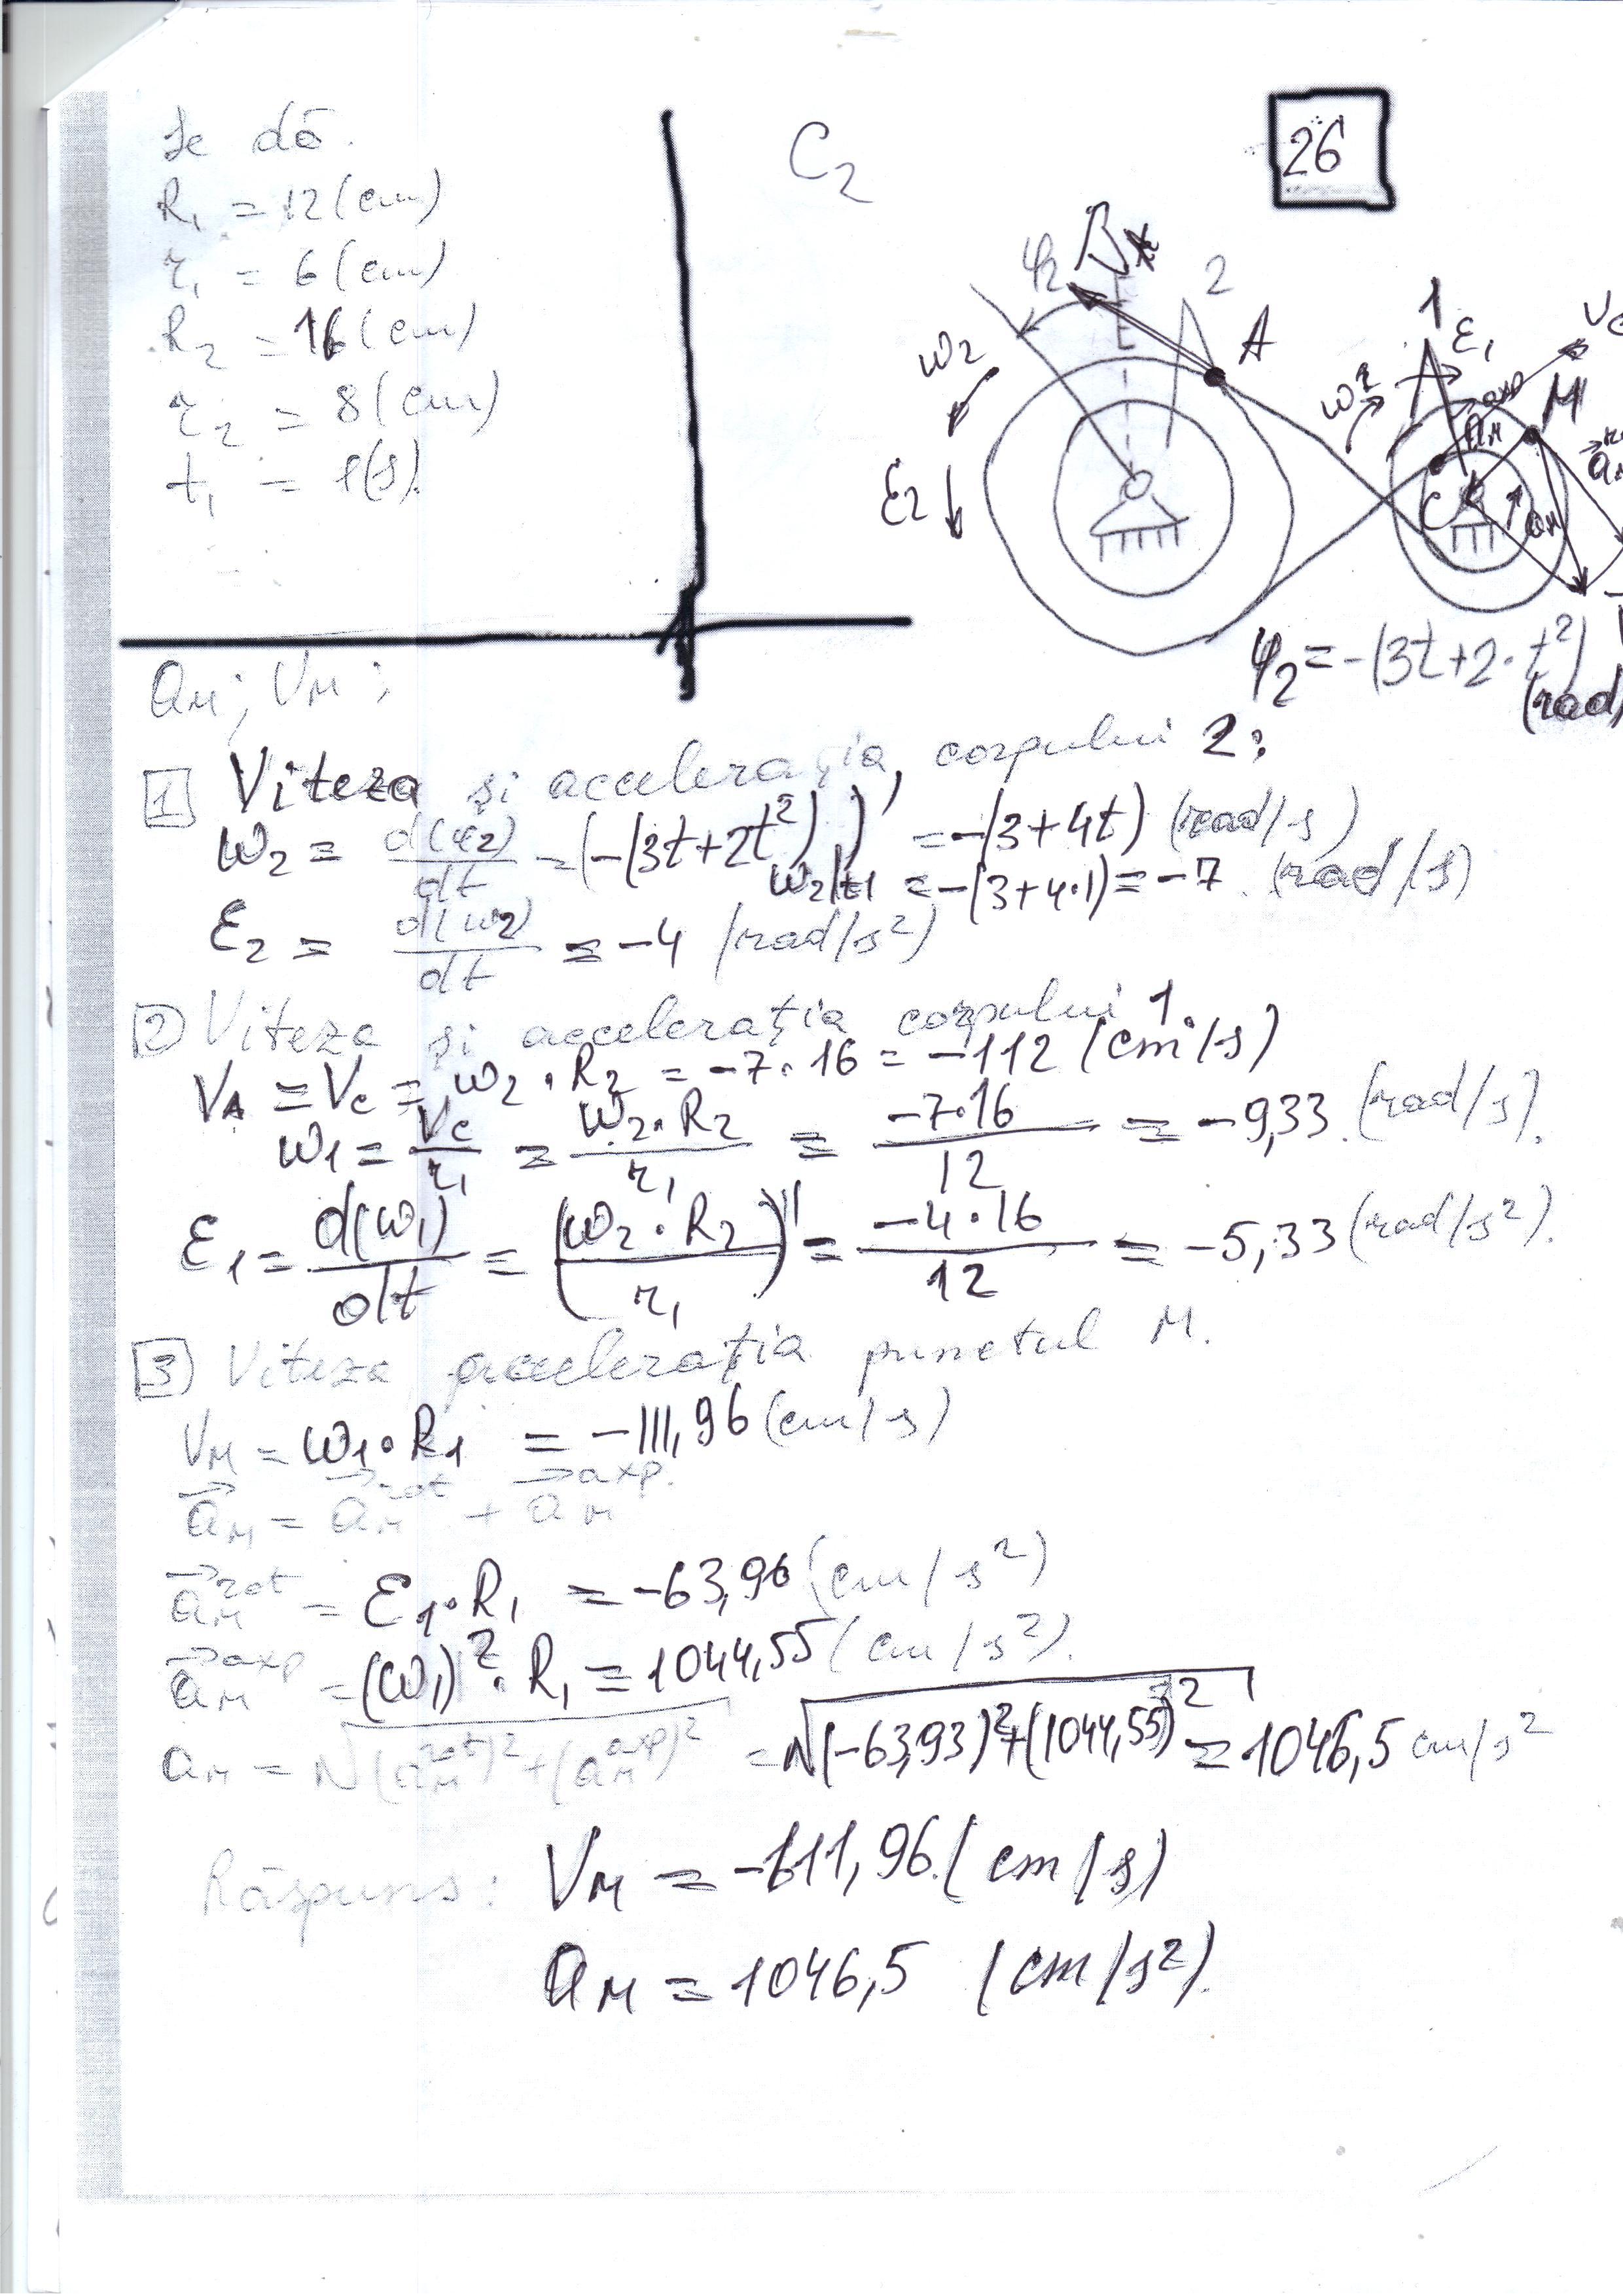 Se dă.
R₁ = 12 (cm)
r₁ = 6 (cm)
R₂ = 16 (cm)
r₂ = 8 (cm)
t₁ = 1(s).
C₂
26
φ₂
2
A
ω₂
ε₂
1
ε₁
M
C
φ₂ = -(3t+2·t²)
(rad/
aₘ; Vₘ;
1 Viteza și accelerația, corpului 2:
ω₂ = d(φ₂)/dt = (-(3t+2t²))' = -(3+4t) (rad/s)
ω₂|t1 = -(3+4·1) = -7. (rad/s)
ε₂ = d(ω₂)/dt = -4 (rad/s²)
2 Viteza și accelerația corpului 1.
V_A = V_C = ω₂·R₂ = -7·16 = -112 (cm/s)
ω1 = V_C/r₁ = ω₂·R₂/r₁ = -7·16/12 = -9,33. (rad/s).
ε₁ = d(ω₁)/dt = (ω₂·R₂/r₁)' = -4·16/12 = -5,33 (rad/s²).
3 Viteza accelerația punctul M.
Vₘ = ω₁·R₁ = -111,96 (cm/s)
a⃗ₘ = a⃗ₘʳᵒᵗ + a⃗ₘᵃˣᵖ.
a⃗ₘʳᵒᵗ = ε₁·R₁ = -63,96 (cm/s²)
a⃗ₘᵃˣᵖ = (ω₁)²·R₁ = 1044,55 (cm/s²).
aₘ = √(aₘʳᵒᵗ)²+(aₘᵃˣᵖ)² = √(-63,93)²+(1044,55)² = 1046,5 cm/s²
Răspuns: Vₘ = -111,96. (cm/s)
aₘ = 1046,5 (cm/s²).